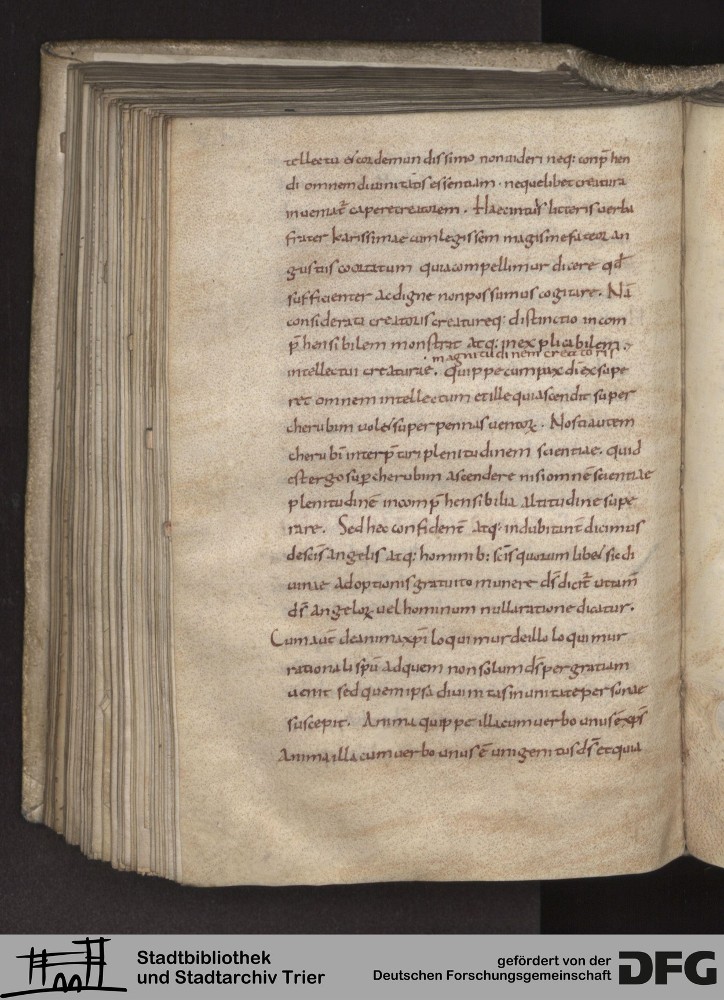 tellectu & corde mundissimo non uideri neq; conp̄hen
di omnem diuinitatis essentiam. neque libet creatura
inueniat̄ capere creatorem. Haec in tuis litteris uerba
frater karissimae cum legissem magis me fateor an
gustiis coartatum quia compellimur dicere qđ
sufficienter ac digne non possumus cogitare. Nā
considerata creatoris creatureq; distinctio incom
p̄hensibilem monstrat atq; inexplicabilem
magnitudinem creatoris
intellectui creaturae. Quippe cum pax dī exsupe
ret omnem intellectum et ille qui ascendit super
cherubim uolet super pennas uentoꝝ. Nosti autem
cherubī interp̄tari plenitudinem scientiae. quid
est ergo sup̄ cherubim ascendere nisi omnē scientiae
plenitudinē incomp̄hensibili altitudine supe
rare. Sed hec confident̄ atq; indubitant̄ dicimus
de sc̄is angelis atq; hominib; sc̄is quorum libet sic di
uinae adoptionis gratuito munere ds̄ dicit̄ ut tam̄
ds̄ angeloꝝ uel hominum nulla ratione dicatur.
Cum aut̄ de anima xp̄i loquimur de illo loquimur
rationali sp̄u ad quem non solum ds̄ per gratiam
uenit sed quem ipsa diuinitas in unitate personae
suscepit. Anima quippe illa cum uerbo unus ē xp̄s
Anima illa cum uerbo unus ē unigenitus ds̄ et quia
Stadtbibliothek
und Stadtarchiv Trier
gefördert von der
Deutschen Forschungsgemeinschaft
DFG